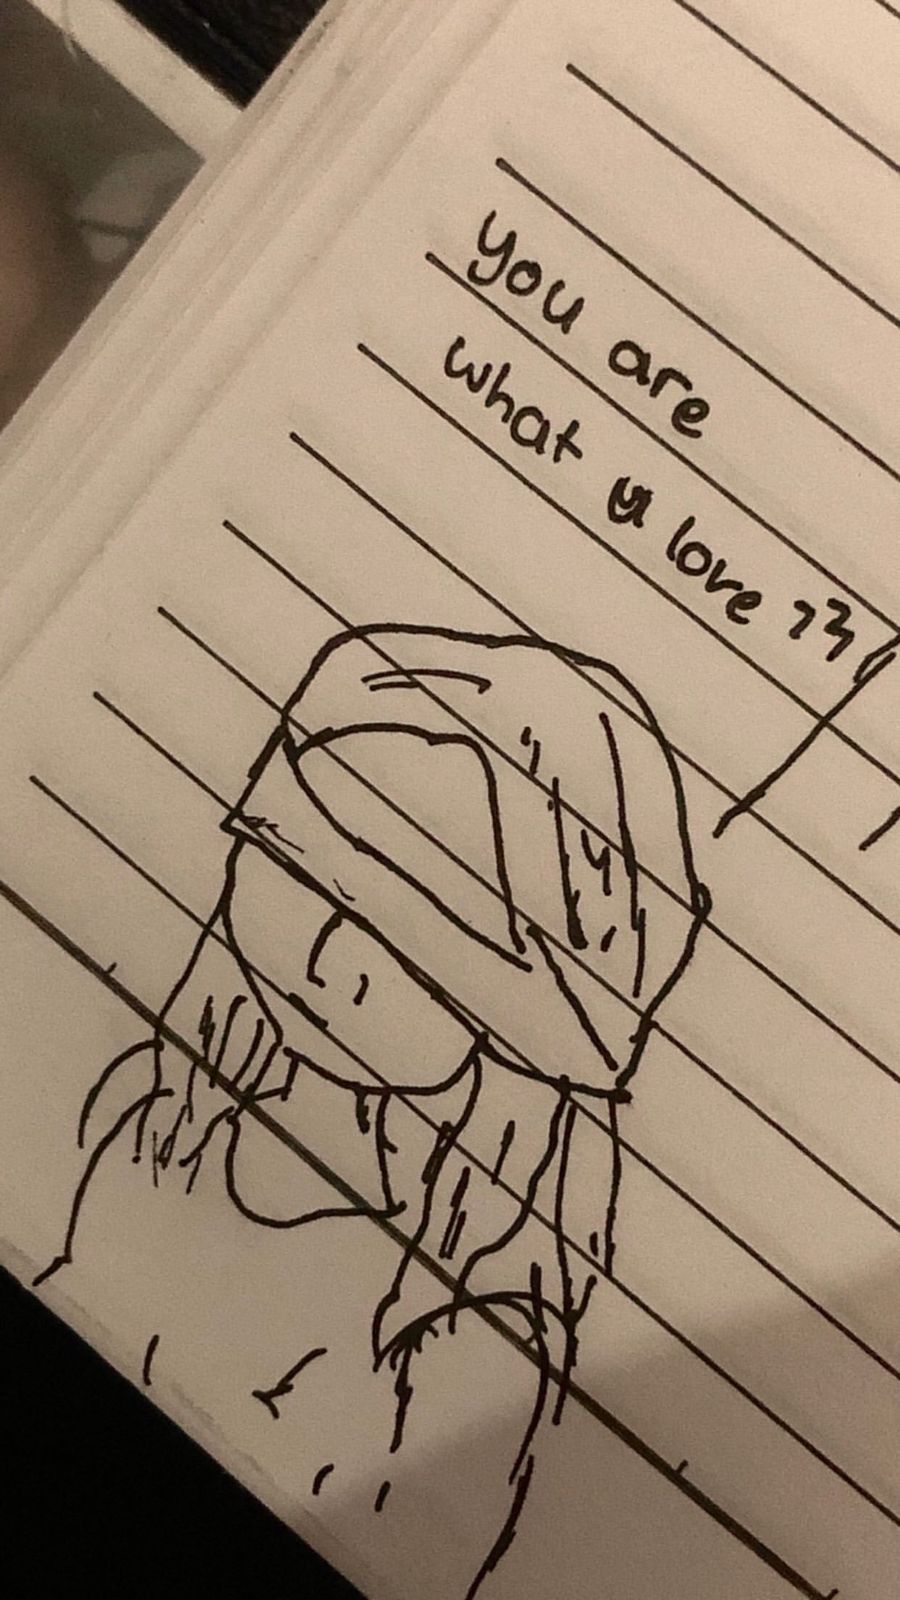 you are
what u love